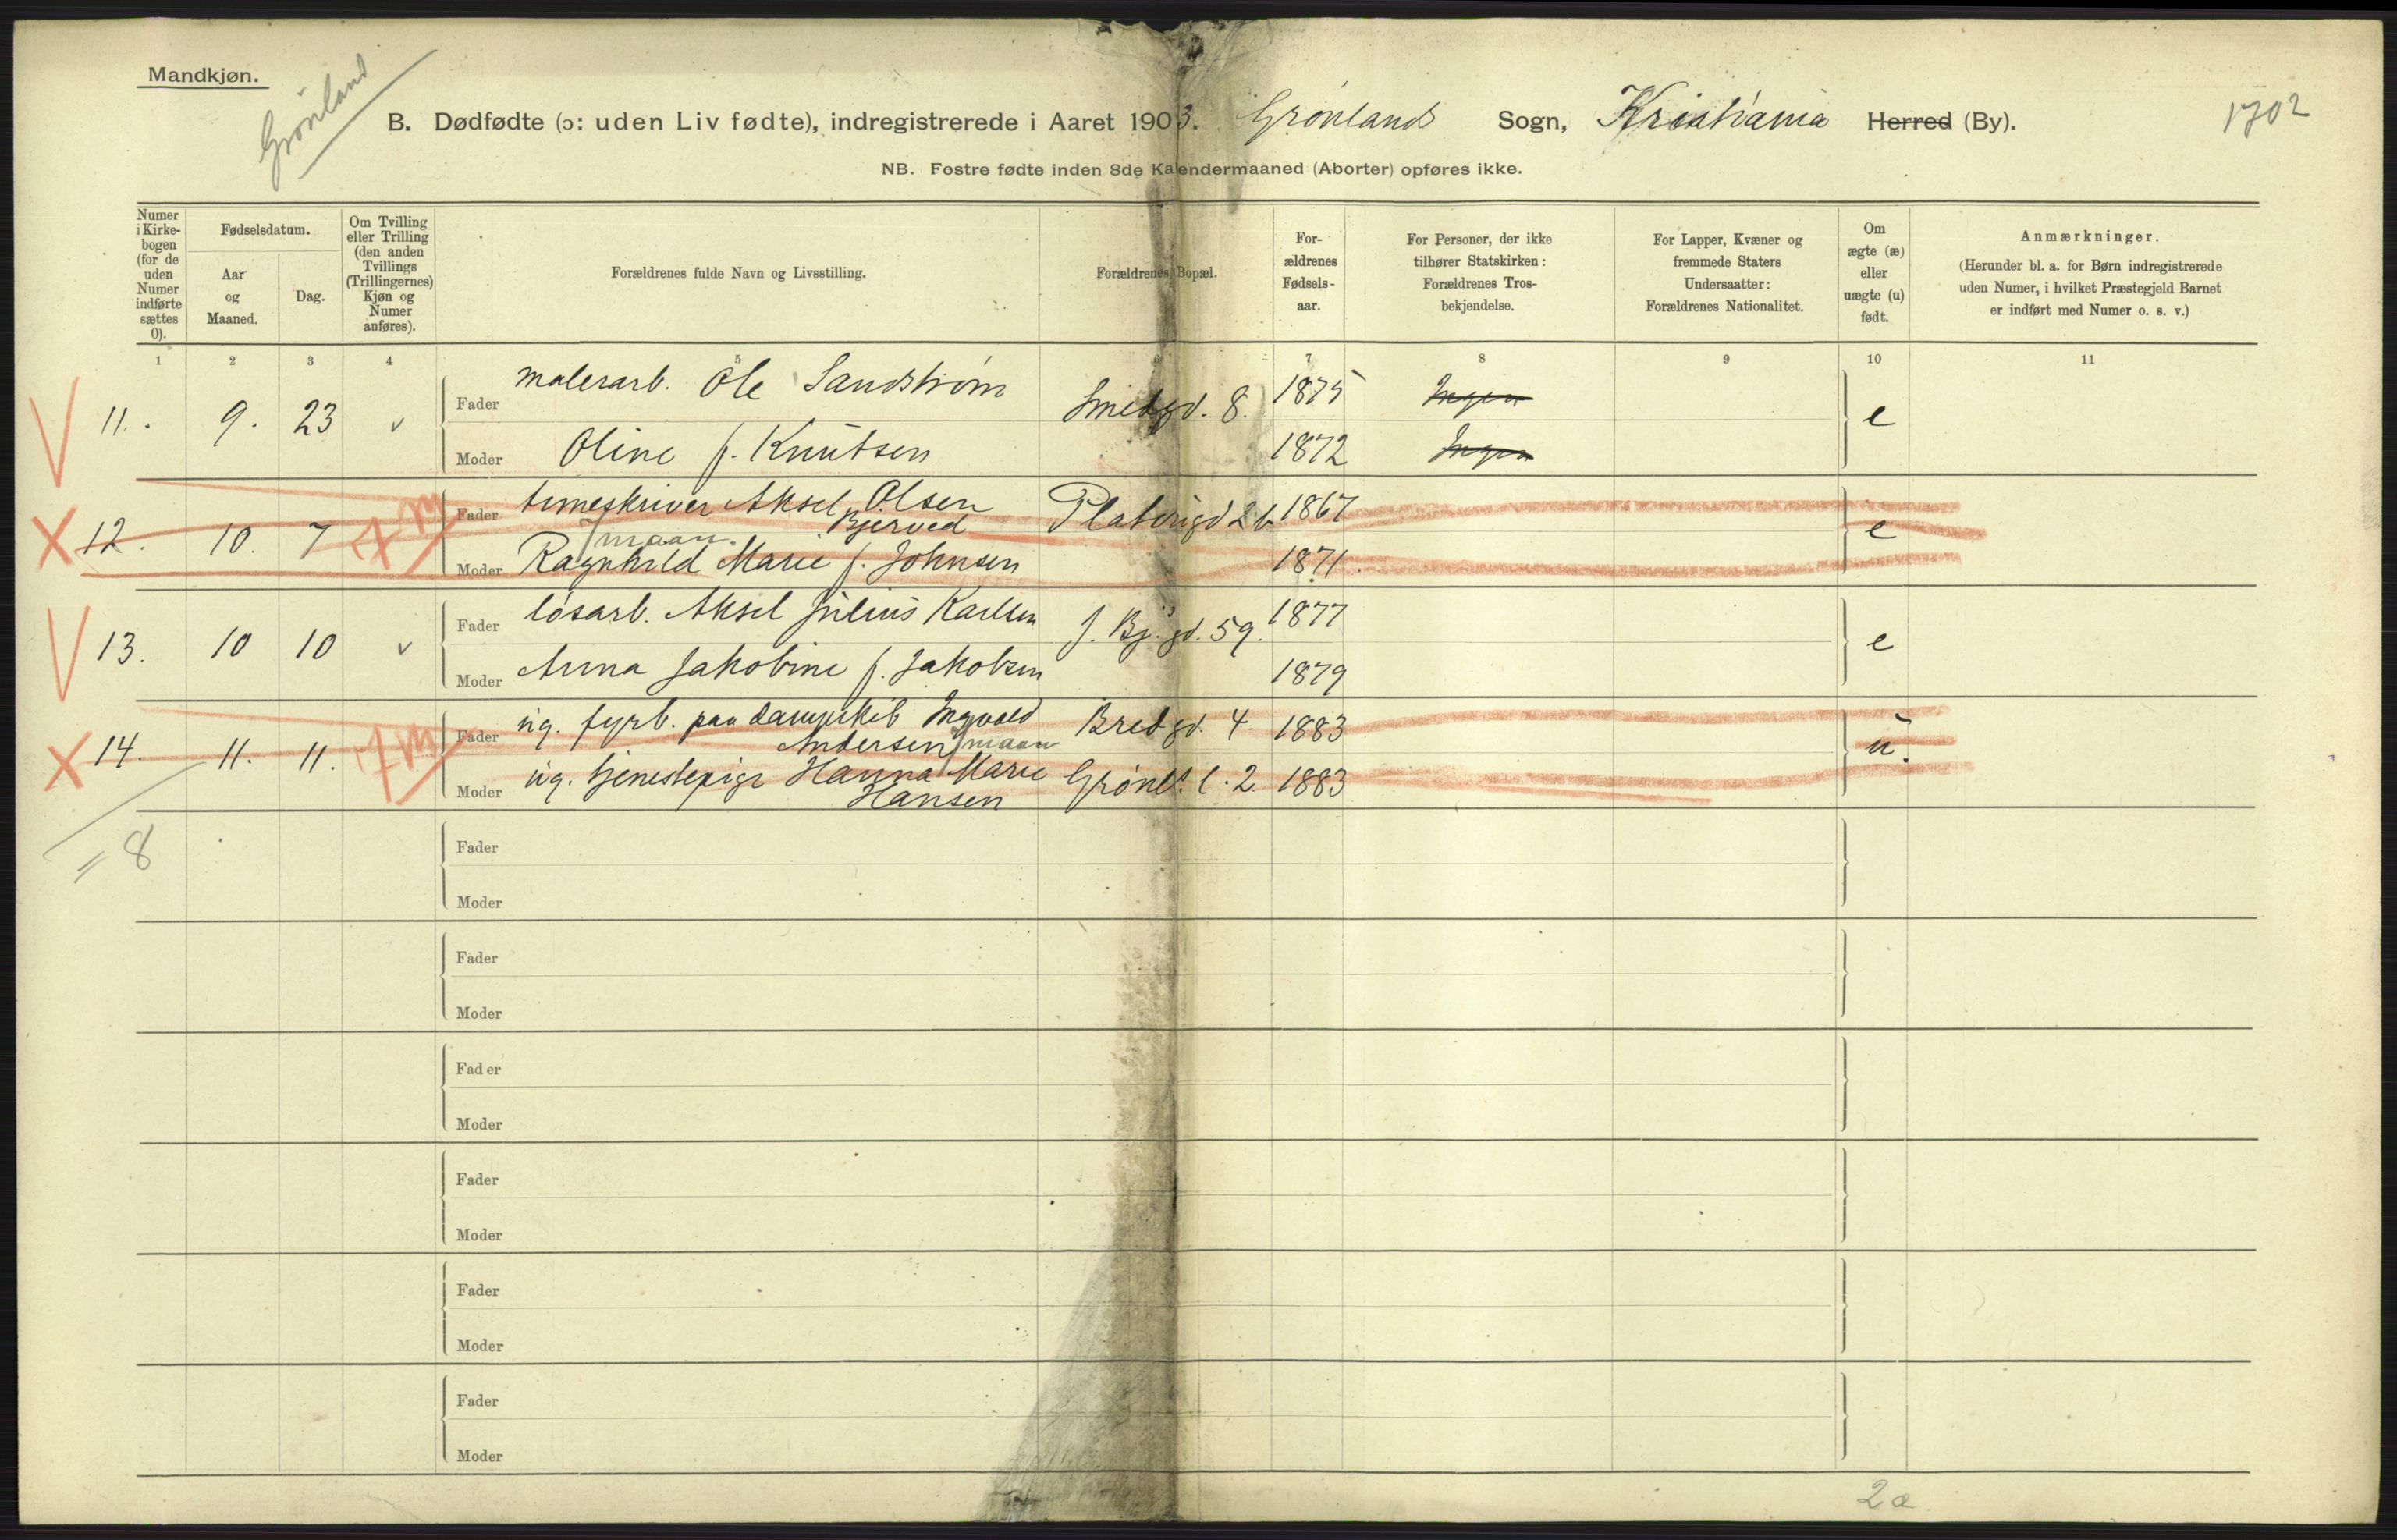 Mandkjøn.
Grønland
B. Dødfødte (ɔ: uden Liv fødte), indregistrerede i Aaret 1903. Grønlands Sogn, Kristiania Herred (By).
1702
NB. Fostre fødte inden 8de Kalendermaaned (Aborter) opføres ikke.
Numer i Kirke-bogen (for de uden Numer indførte sættes 0).
Fødselsdatum.
Aar og Maaned.
Dag.
Om Tvilling eller Trilling (den anden Tvillings (Trillingernes) Kjøn og Numer anføres).
Forældrenes fulde Navn og Livsstilling.
Forældrenes Bopæl.
For-ældrenes Fødsels-aar.
For Personer, der ikke tilhører Statskirken: Forældrenes Tros-bekjendelse.
For Lapper, Kvæner og fremmede Staters Undersaatter: Forældrenes Nationalitet.
Om ægte (æ) eller uægte (u) født.
Anmærkninger.
(Herunder bl. a. for Børn indregistrerede uden Numer, i hvilket Præstegjeld Barnet er indført med Numer o. s. v.)
1 2 3 4 5 6 7 8 9 10 11
V 11. 9. 23 v Fader malerarb. Ole Sandstrøm Smedgd. 8. 1875 Ingen e
Moder Oline f. Knutsen 1872 Ingen
X 12. 10. 7 7 m Fader timeskriver Aksel Olsen Bjerved Platousgd 2 b 1867 e
7 maan.
Moder Ragnhild Marie f. Johnsen 1871.
V 13. 10 10 v Fader løsarb. Aksel Julius Karlsen J. Bj. gd. 59. 1877 e
Moder Anna Jakobine f. Jakobsen 1879
X 14. 11. 11. 7 m Fader ug. fyrb. paa dampskib Ingvald Andersen Bredgd. 4. 1883 u.
7 maan
Moder ug. tjenestepige Hanna Marie Hansen Grønl. l. 2. 1883
= 8
Fader
Moder
Fader
Moder
Fader
Moder
Fader
Moder
Fader
Moder
Fader
Moder
2 a.